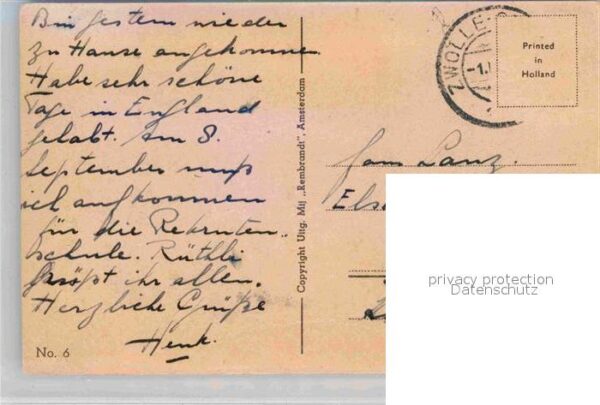 Bin gestern wieder
zu Hause angekommen
Habe sehr schöne
Tage in England
gehabt. Am 8.
September muß
ich aufkommen
für die Rekruten-
schule. Rüthli
grüßt ihr allen.
Herzliche Grüße
Henk.
No. 6
Copyright Uitg. Mij „Rembrandt", Amsterdam
ZWOLLE
-1.
Printed
in
Holland
Fam. Lanz.
privacy protection
Datenschutz